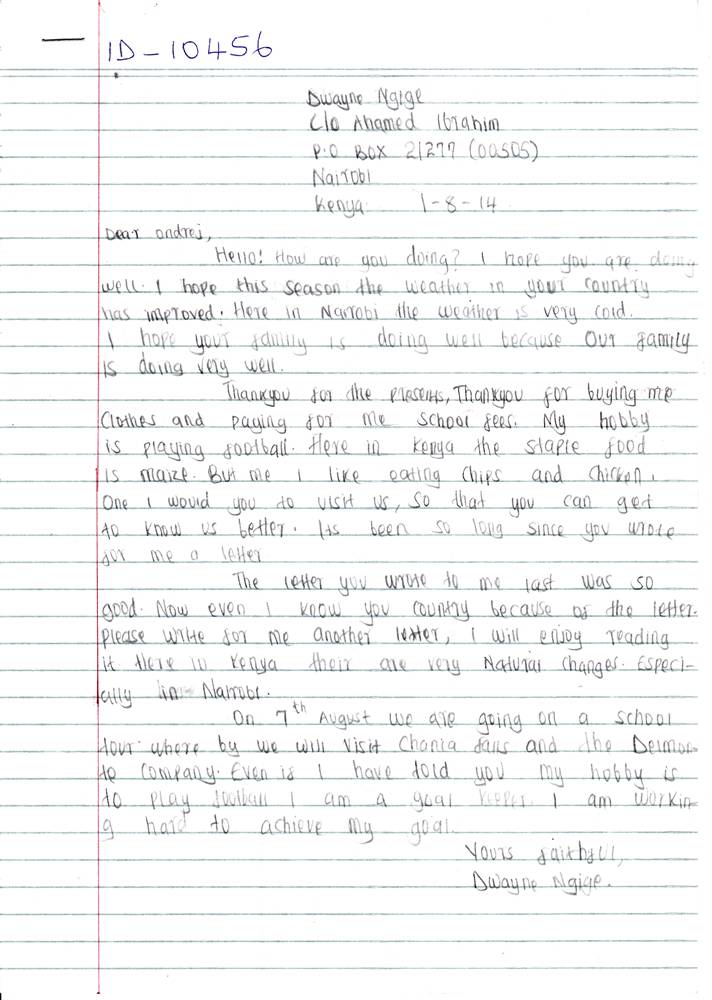 ID-10456
Dwayne Ngige
C/o Ahamed Ibrahim
P.O BOX 21277 (00505)
Nairobi
Kenya 1-8-14
Dear ondrej,
Hello! How are you doing? I hope you are doing
well. I hope this season the weather in your country
has improved. Here in Nairobi the weather is very cold.
I hope your family is doing well because Our family
is doing very well.
Thankyou for the presents, Thankyou for buying me
clothes and paying for me school fees. My hobby
is playing football. Here in Kenya the staple food
is maize. But me I like eating Chips and Chicken.
One I would you to visit us, so that you can get
to know us better. Its been so long since you wrote
for me a letter
The letter you wrote to me last was so
good. Now even I know you country because of the letter.
please write for me another letter, I will enjoy reading
it Here in Kenya their are very Natural Changes. Especi-
ally in Nairobi.
On 7th August we are going on a school
tour where by we will visit Chania falls and the Delmon-
te Company. Even is I have told you my hobby is
to play football I am a goal keeper. I am workin-
g hard to achieve my goal.
Yours faithful,
Dwayne Ngige.